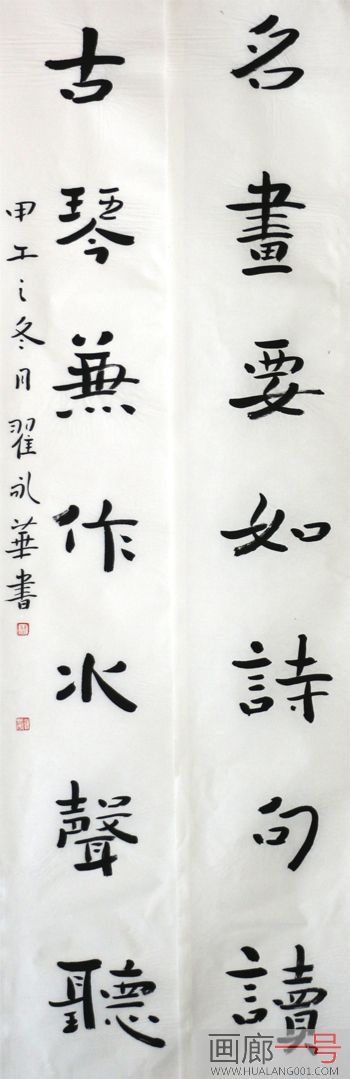 名畫要如詩句讀
古琴兼作水聲聽
甲午之冬月翟永華書
画廊一号
WWW.HUALANG001.COM